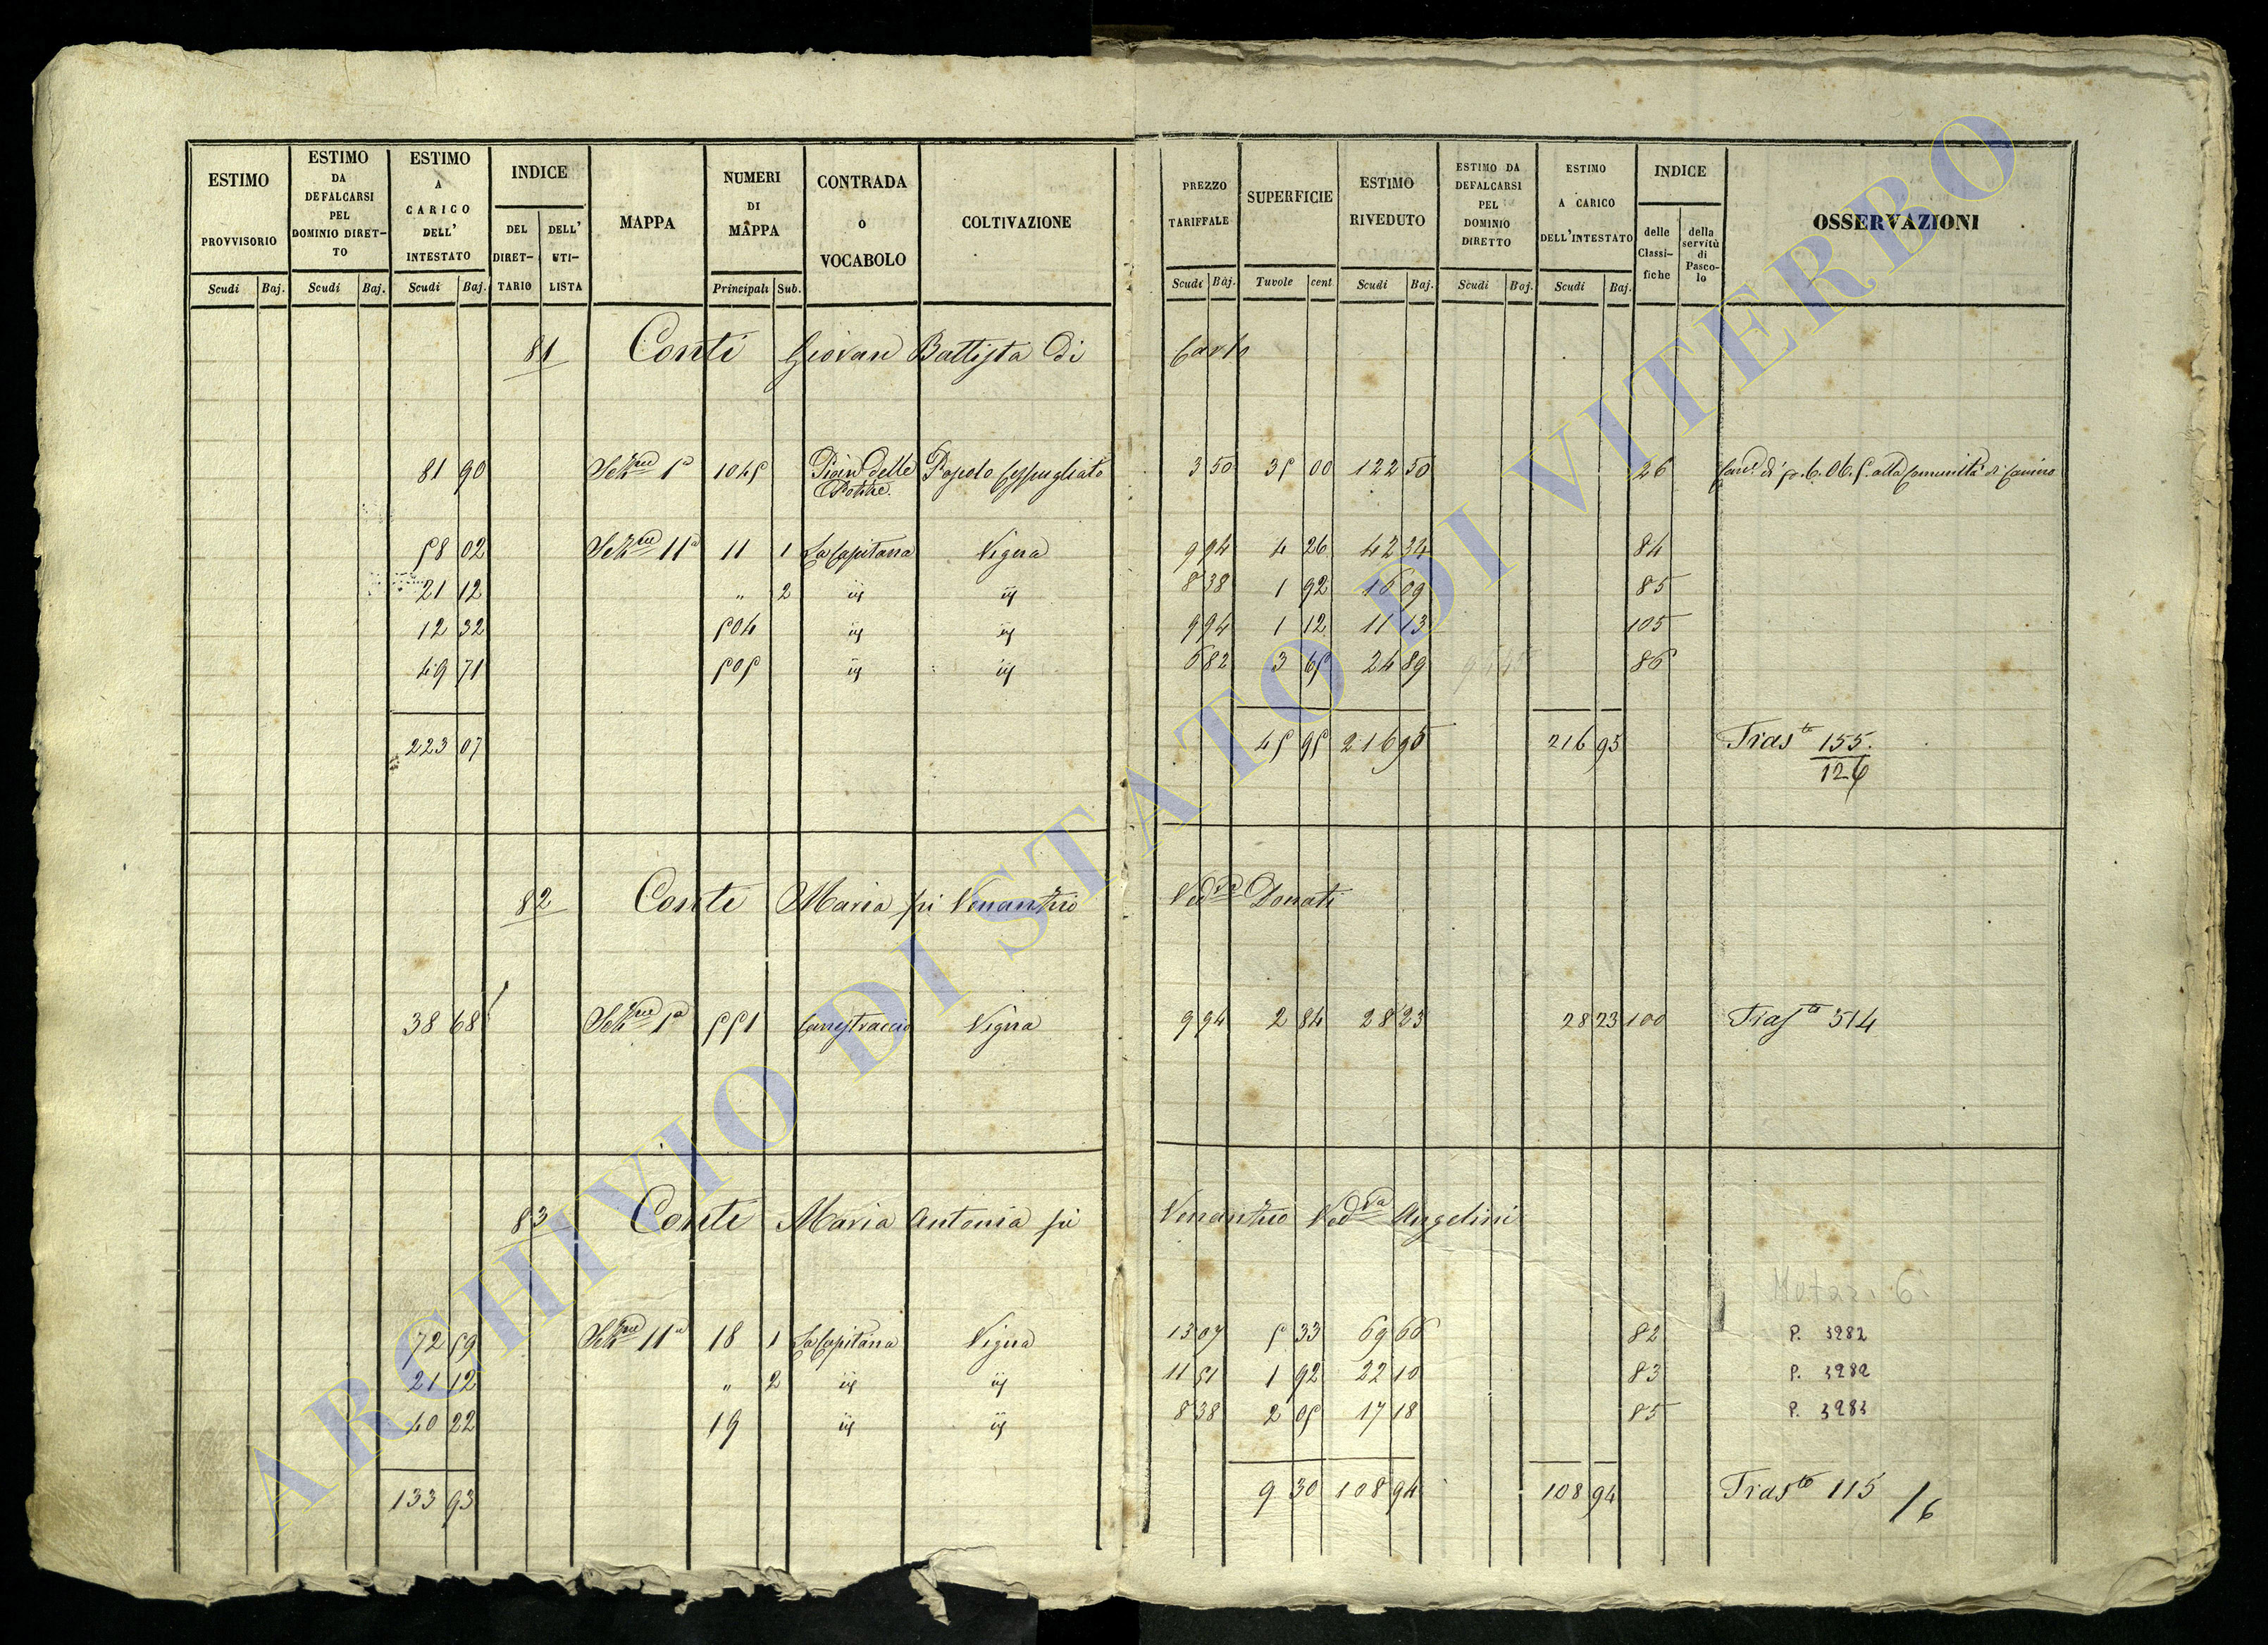 ESTIMO PROVVISORIO Scudi Baj.
ESTIMO DA DEFALCARSI PEL DOMINIO DIRET-TO Scudi Baj.
ESTIMO A CARICO DELL' INTESTATO Scudi Baj.
INDICE DEL DIRET-TARIO DELL' UTI-LISTA
MAPPA
NUMERI DI MAPPA Principali Sub.
CONTRADA o VOCABOLO
COLTIVAZIONE
PREZZO TARIFFALE Scudi Baj.
SUPERFICIE Tavole cent
ESTIMO RIVEDUTO Scudi Baj.
ESTIMO DA DEFALCARSI PEL DOMINIO DIRETTO Scudi Baj.
ESTIMO A CARICO DELL'INTESTATO Scudi Baj.
INDICE delle Classi-fiche della servitù di Pasco-lo
OSSERVAZIONI
81 Conti Giovan Battista di Carlo
81 90 Sez.ne 1a 1045 Pian delle Pascolo Cespugliato 3 50 35 00 122 50 26 alla Comunità di Canino
58 02 Sez.ne 11a 11 1 La Capitana Vigna 9 94 4 26 42 34 84
21 12 " 2 id id 8 38 1 92 16 09 85
12 32 504 id id 9 94 1 12 11 13 105
49 71 505 id id 6 82 3 65 24 89 86
223 07 45 95 216 95 216 95 Trasto 155.
126
82 Conti Maria fu Venanzio Ved.va Donati
38 68 Sez.ne 1a 551 Canestraccio Vigna 9 94 2 84 28 23 28 23 100 Trasto 514
83 Conti Maria Antonia fu Venanzio Ved.va Angelini
72 59 Sez.ne 11a 18 1 La Capitana Vigna 13 07 5 33 69 66 82 P. 3282
21 12 " 2 id id 11 51 1 92 22 10 83 P. 3282
40 22 19 id id 8 38 2 05 17 18 85 P. 3283
133 93 9 30 108 94 108 94 Trasto 115 /6
ARCHIVIO DI STATO DI VITERBO